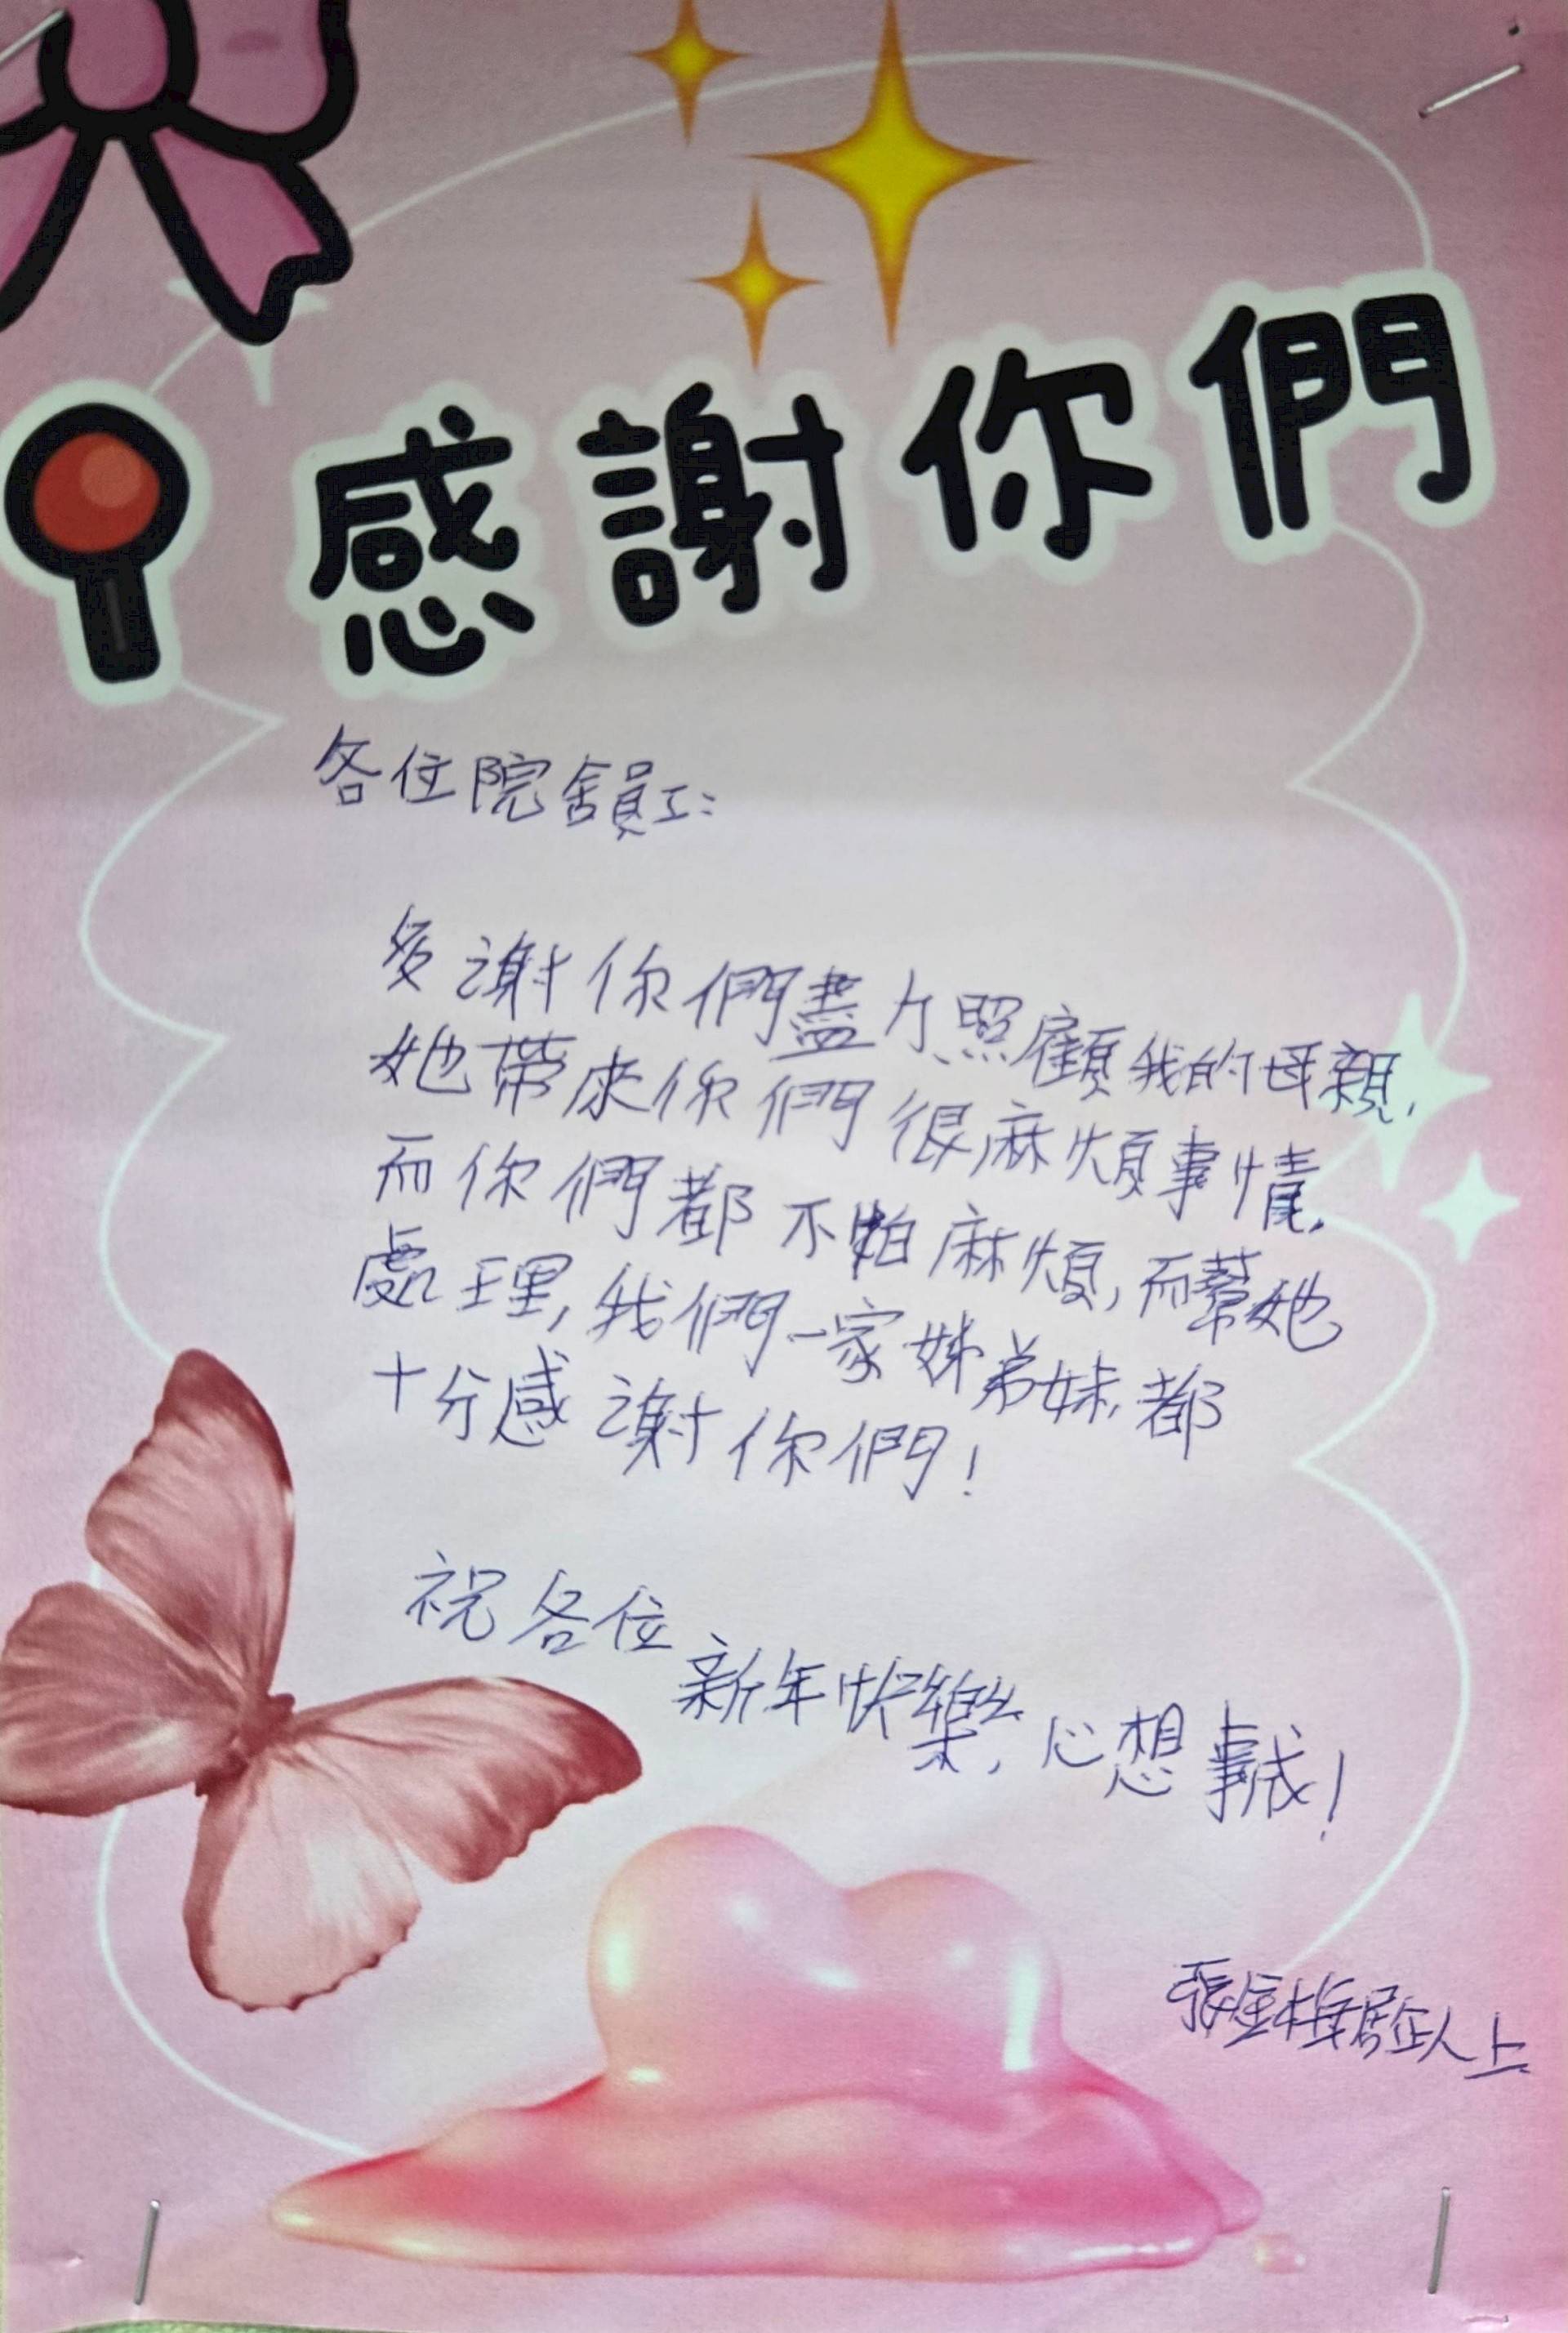 感謝你們
各住院舍員工:
多謝你們盡力照顧我的母親,
她帶來你們很麻煩事情,
而你們都不怕麻煩,而幫她
處理,我們一家姊弟妹,都
十分感謝你們!
祝各位
新年快樂,心想事成!
張金梅
人上